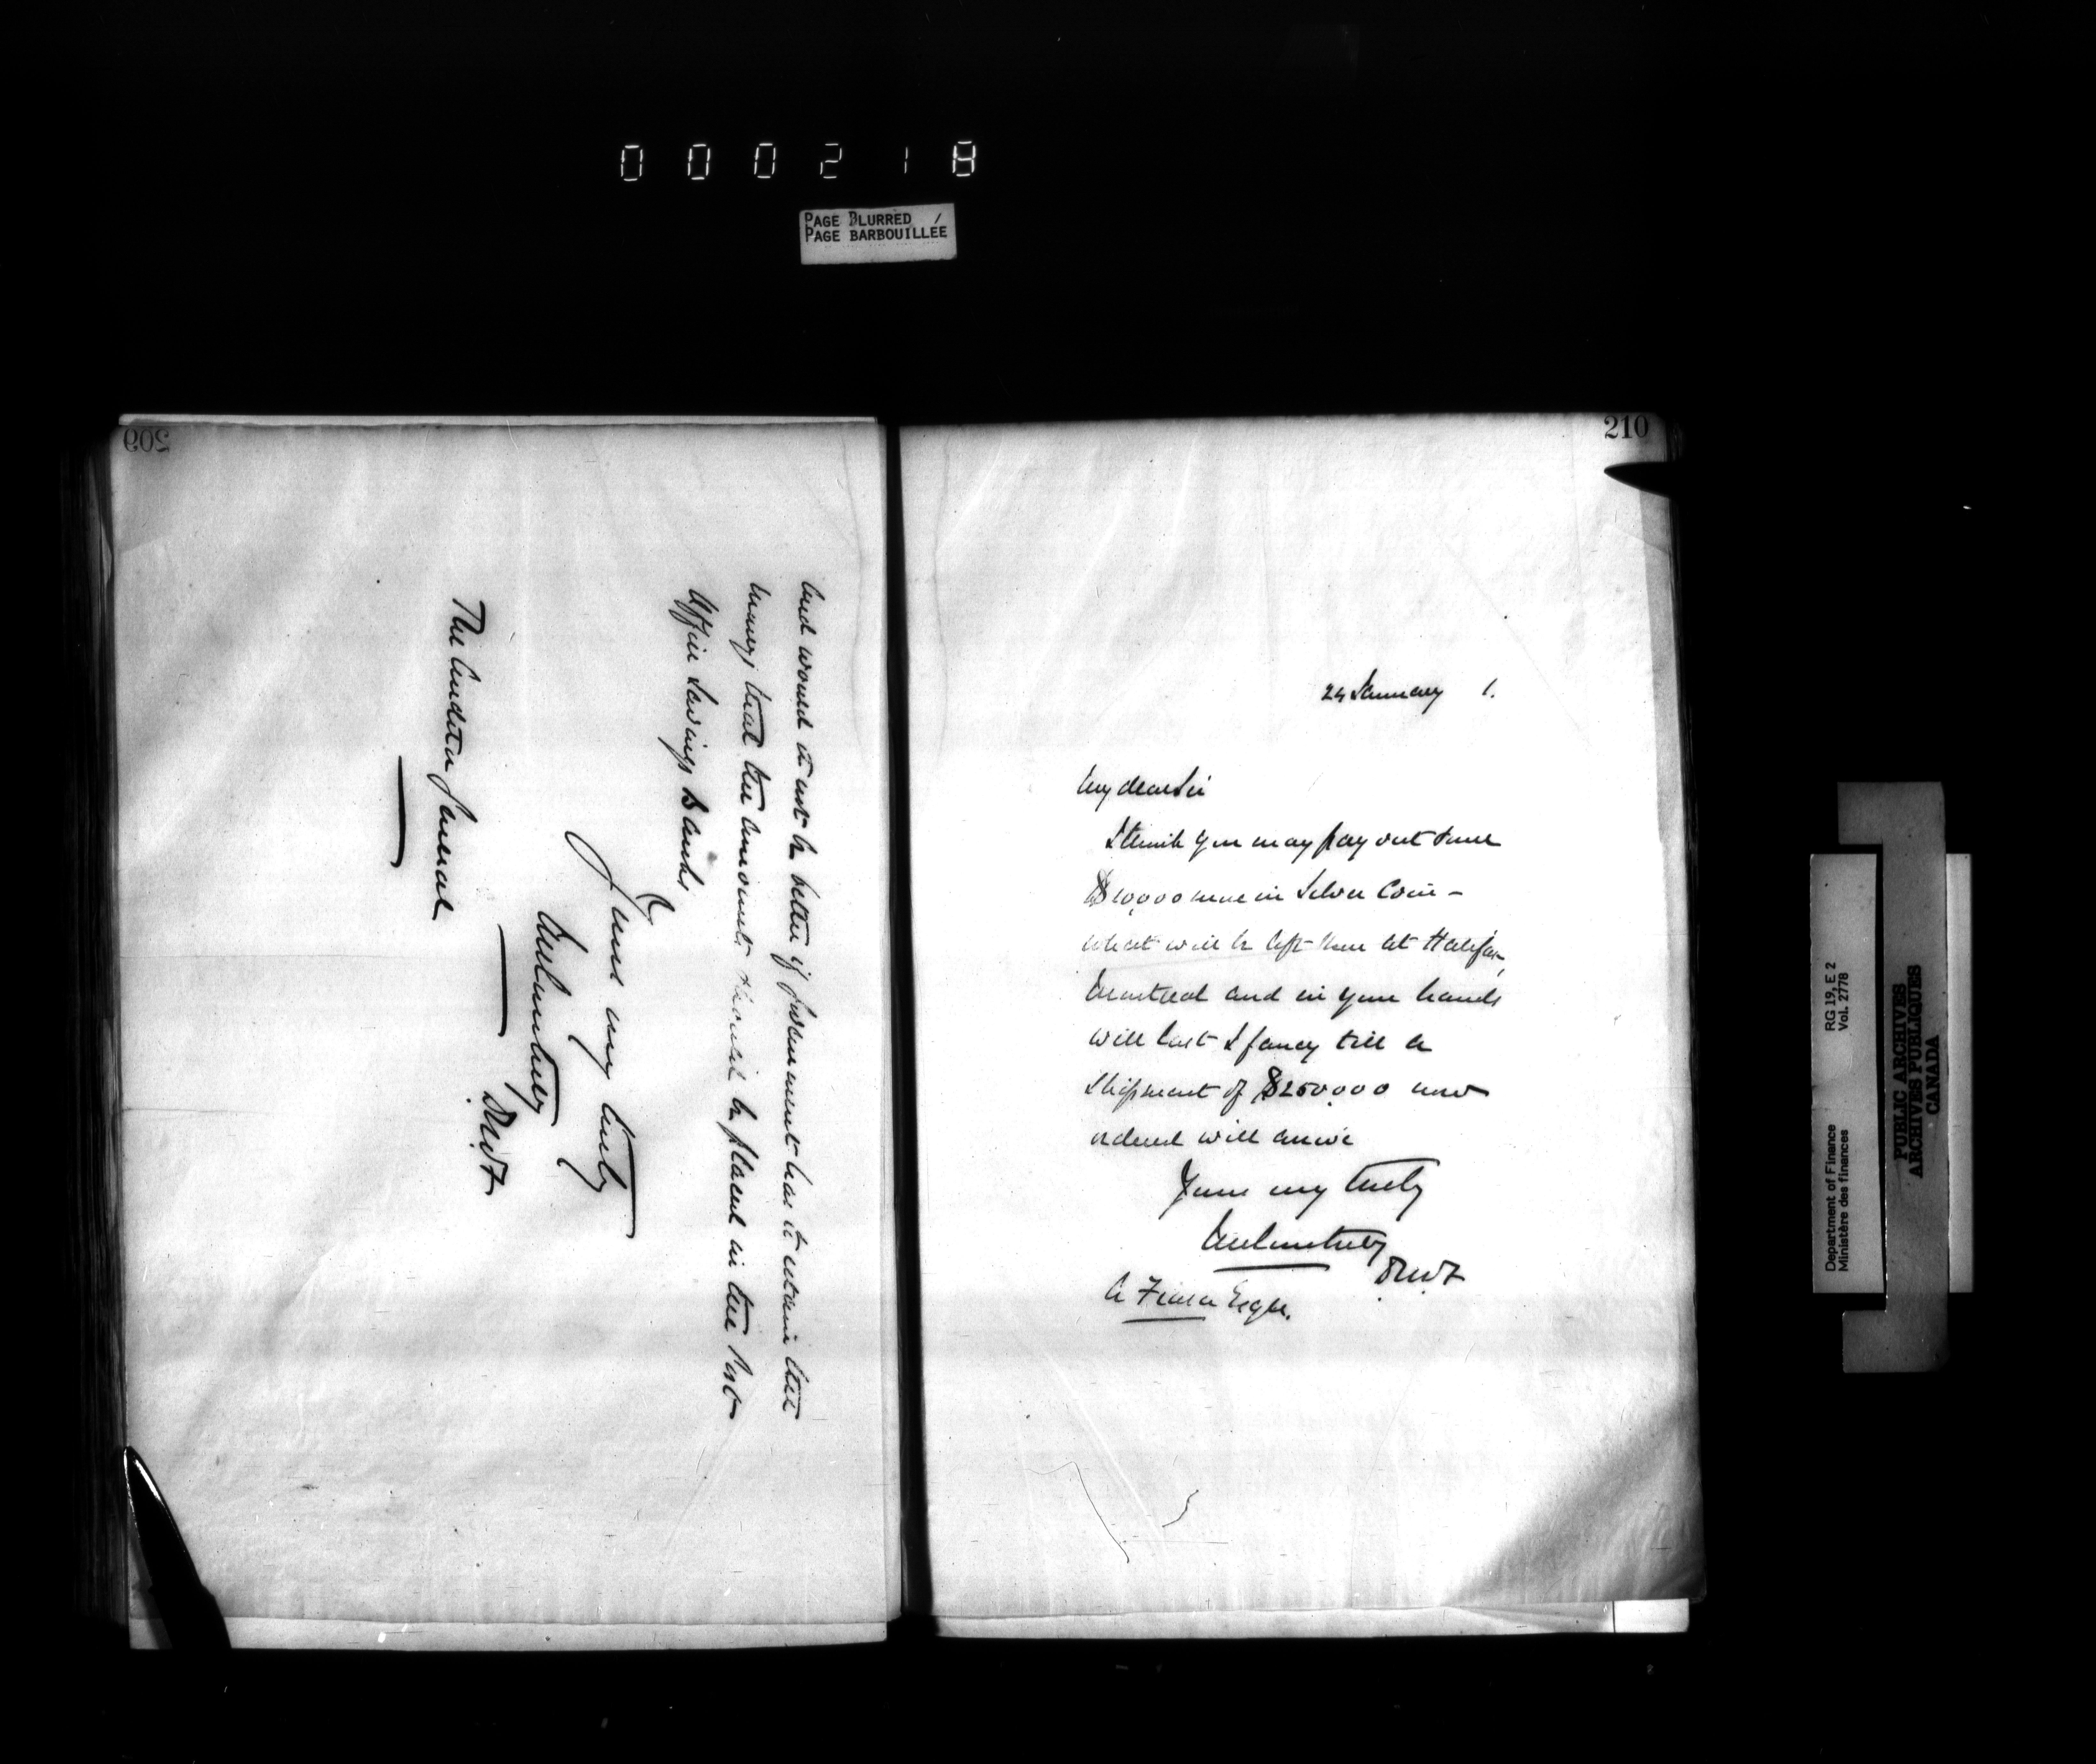 000218
PAGE BLURRED /
PAGE BARBOUILLÉE
209
and would it not be better if Government has to retain the
money, that the amounts should be placed in the Post
Office Savings Bank,
Yours very truly
JMCourtney
DMF
The Auditor General
210
24 January 1.
My dear Sir
I think you may pay out some
$10,000 more in Silver Coin –
what will be left then at Halifax,
Montreal and in your hands
will last I fancy till a
shipment of $250,000 now
ordered will arrive
Yours very truly
JMCourtney
DMF
A Fraser Esqre.
Department of Finance RG 19, E 2
Ministère des finances Vol. 2778
PUBLIC ARCHIVES
ARCHIVES PUBLIQUES
CANADA